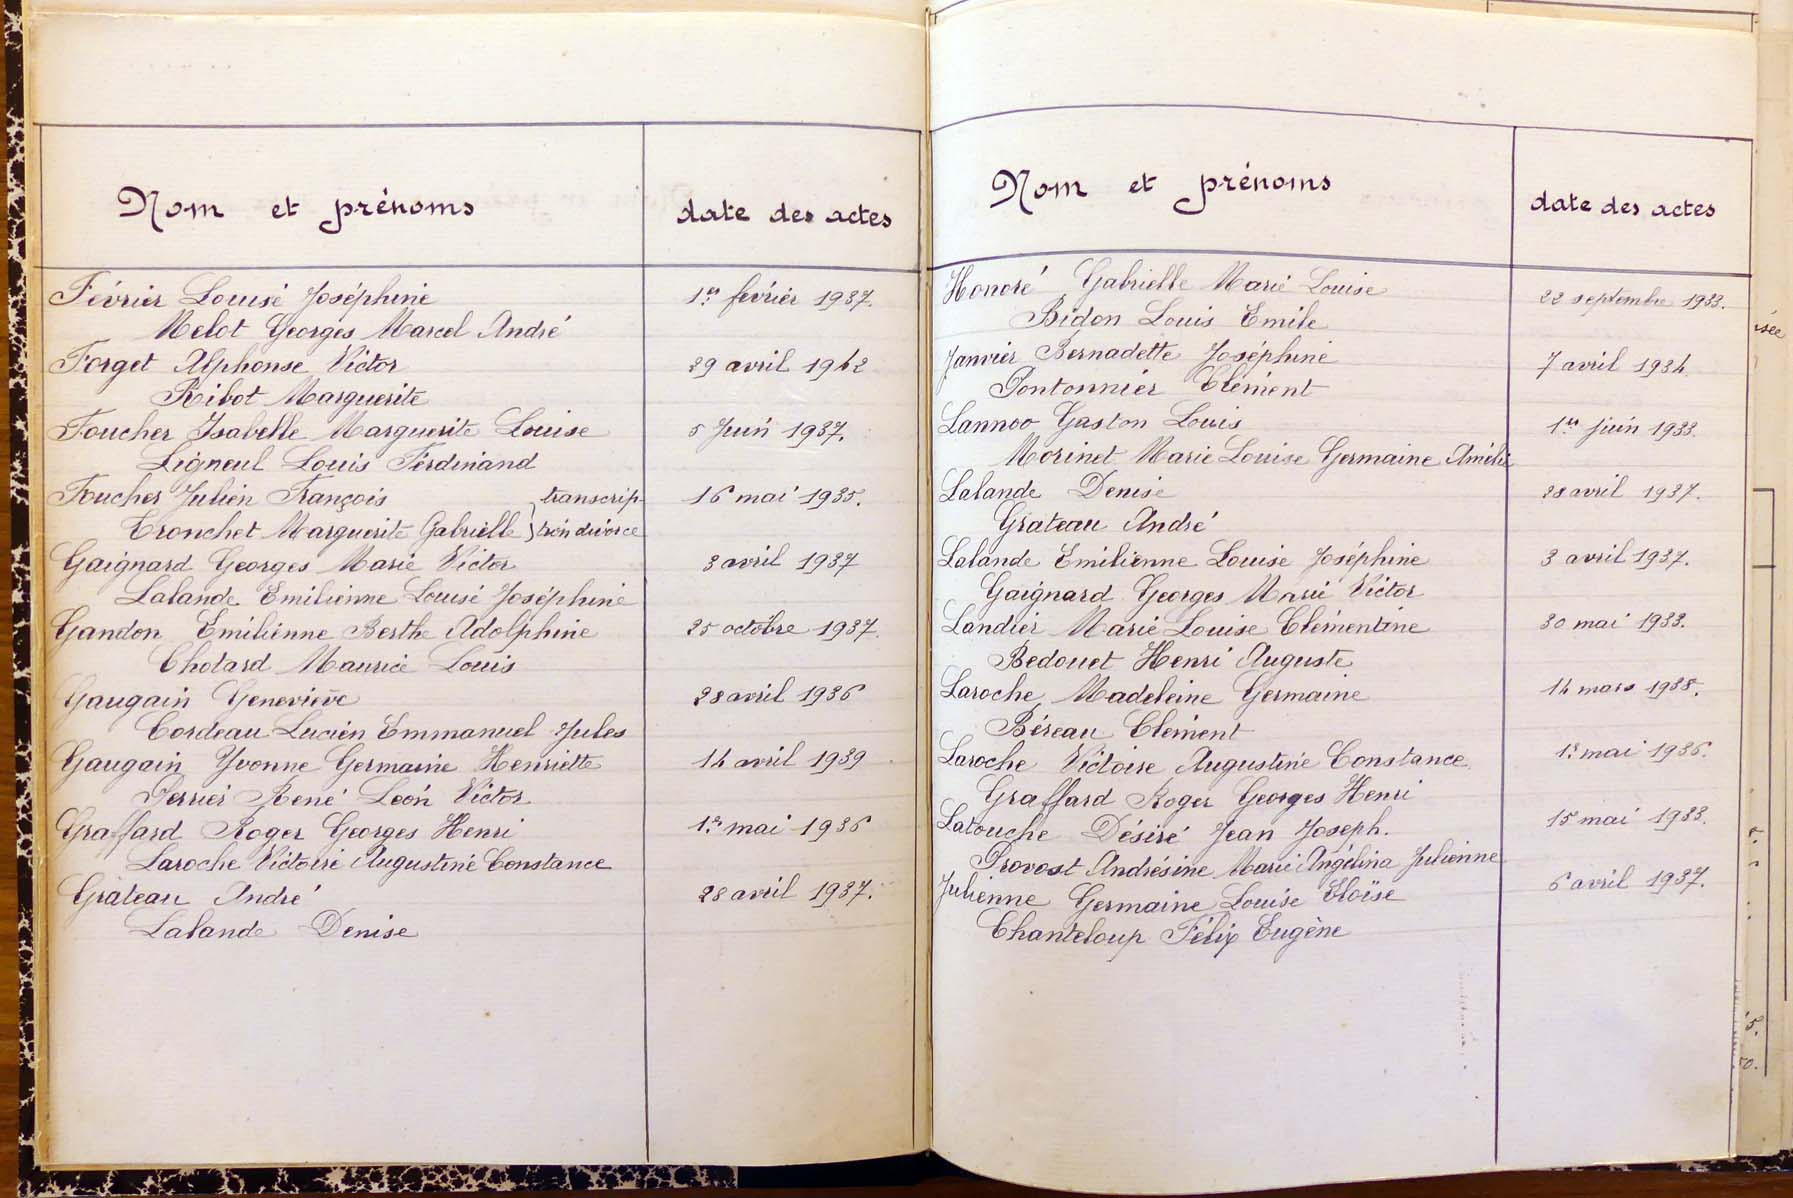 Nom et prénoms
date des actes
Février Louise Joséphine
1er février 1937.
Melot Georges Marcel André
Forget Alphonse Victor
29 avril 1942
Ribot Marguerite
Foucher Isabelle Marguerite Louise
5 Juin 1937.
Ligneul Louis Ferdinand
Foucher Julien François } transcrip-
16 mai 1935.
Tronchet Marguerite Gabrielle } tion divorce
Gaignard Georges Marie Victor
3 avril 1937
Lalande Emilienne Louise Joséphine
Gandon Emilienne Berthe Adolphine
25 octobre 1937.
Chotard Maurice Louis
Gaugain Geneviève
28 avril 1936
Cordeau Lucien Emmanuel Jules
Gaugain Yvonne Germaine Henriette
14 avril 1939
Perrier René Léon Victor
Graffard Roger Georges Henri
1er mai 1936
Laroche Victoire Augustine Constance
Grateau André
28 avril 1937.
Lalande Denise
Nom et prénoms
date des actes
Honoré Gabrielle Marie Louise
22 septembre 1933.
Bidon Louis Emile
Janvier Bernadette Joséphine
7 avril 1934.
Pontonnier Clément
Lannoo Gaston Louis
1er juin 1933.
Morinet Marie Louise Germaine Amélie
Lalande Denise
28 avril 1937.
Grateau André
Lalande Emilienne Louise Joséphine
3 avril 1937.
Gaignard Georges Marie Victor
Landier Marie Louise Clémentine
30 mai 1933.
Bedouet Henri Auguste
Laroche Madeleine Germaine
14 mars 1938.
Béreau Clément
Laroche Victoire Augustine Constance
1er mai 1936.
Graffard Roger Georges Henri
Latouche Désiré Jean Joseph.
15 mai 1933.
Provost Andrésine Marie Angélina Julienne
Julienne Germaine Louise Eloïse
6 avril 1937.
Chanteloup Félix Eugène